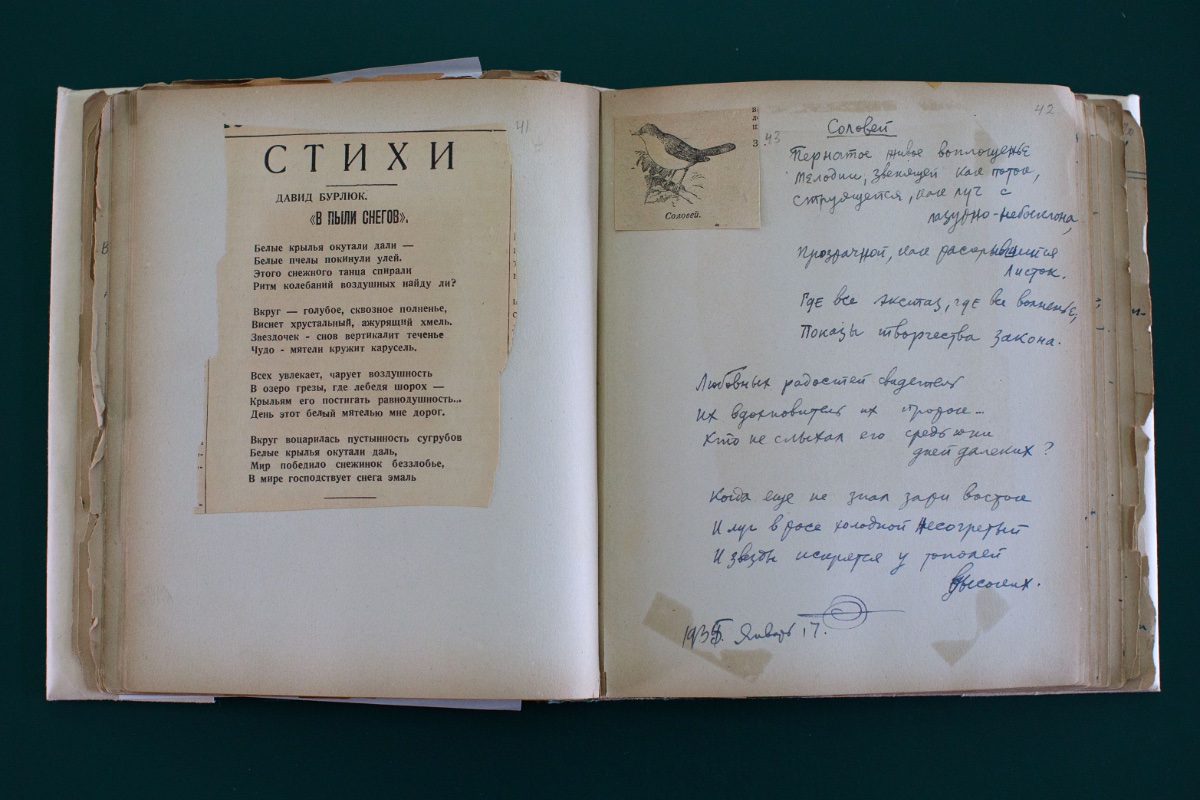 41
СТИХИ
ДАВИД БУРЛЮК.
«В ПЫЛИ СНЕГОВ».
Белые крылья окутали дали —
Белые пчелы покинули улей.
Этого снежного танца спирали
Ритм колебаний воздушных найду ли?
Вкруг — голубое, сквозное полненье,
Виснет хрустальный, ажурящий хмель.
Звездочек - снов вертикалит теченье
Чудо - мятели кружит карусель.
Всех увлекает, чарует воздушность
В озеро грезы, где лебедя шорох —
Крыльям его постигать равнодушность...
День этот белый мятелью мне дорог.
Вкруг воцарилась пустынность сугрубов
Белые крылья окутали даль,
Мир победило снежинок беззлобье,
В мире господствует снега эмаль
42
43
Соловей.
Соловей
Пернатое живое воплощенье
Мелодии, звенящей как поток,
струящейся, как луч с
лазурно-небосклона,
Прозрачной, как раскрывшийся
Листок.
Где все экстаз, где все волненье,
Показы творчества закона.
Любовных радостей свидетель
Их вдохновитель их пророк...
Кто не слыхал его средь юни
дней далеких?
Когда еще не знал зари восток
И луг в росе холодной Несогретый
И звезды искрятся у тополей
Высоких.
Январь 17.